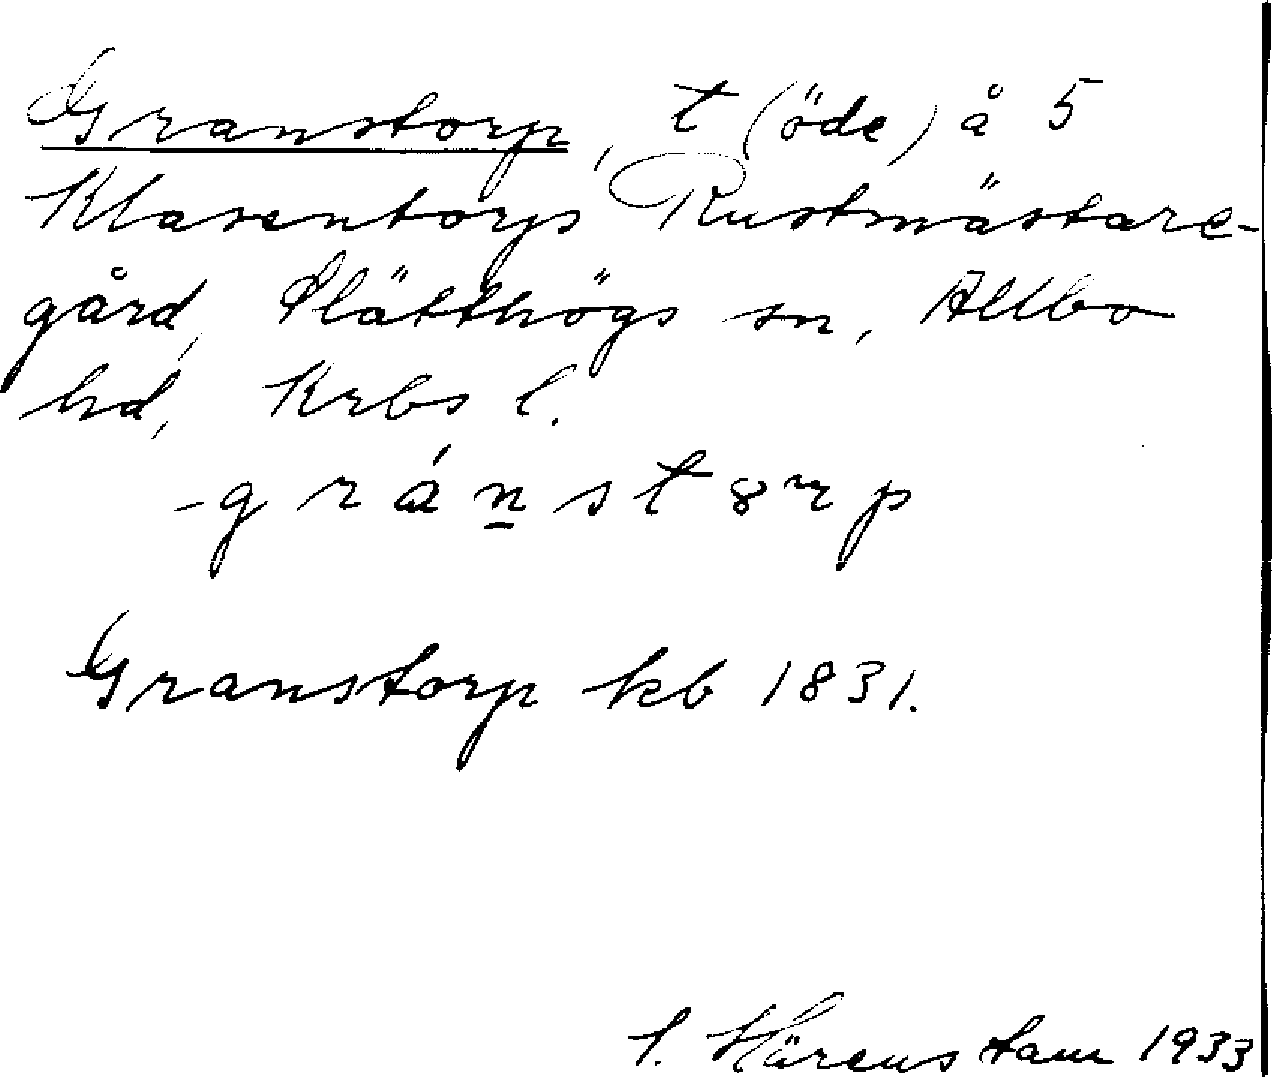 Granstorp, t (öde) å 5
Klasentorps Rustmästare-
gård, Slätthögs sn, Allbo
hd, Krbs l.
-gránst8rp
Granstorp kb 1831.
1933